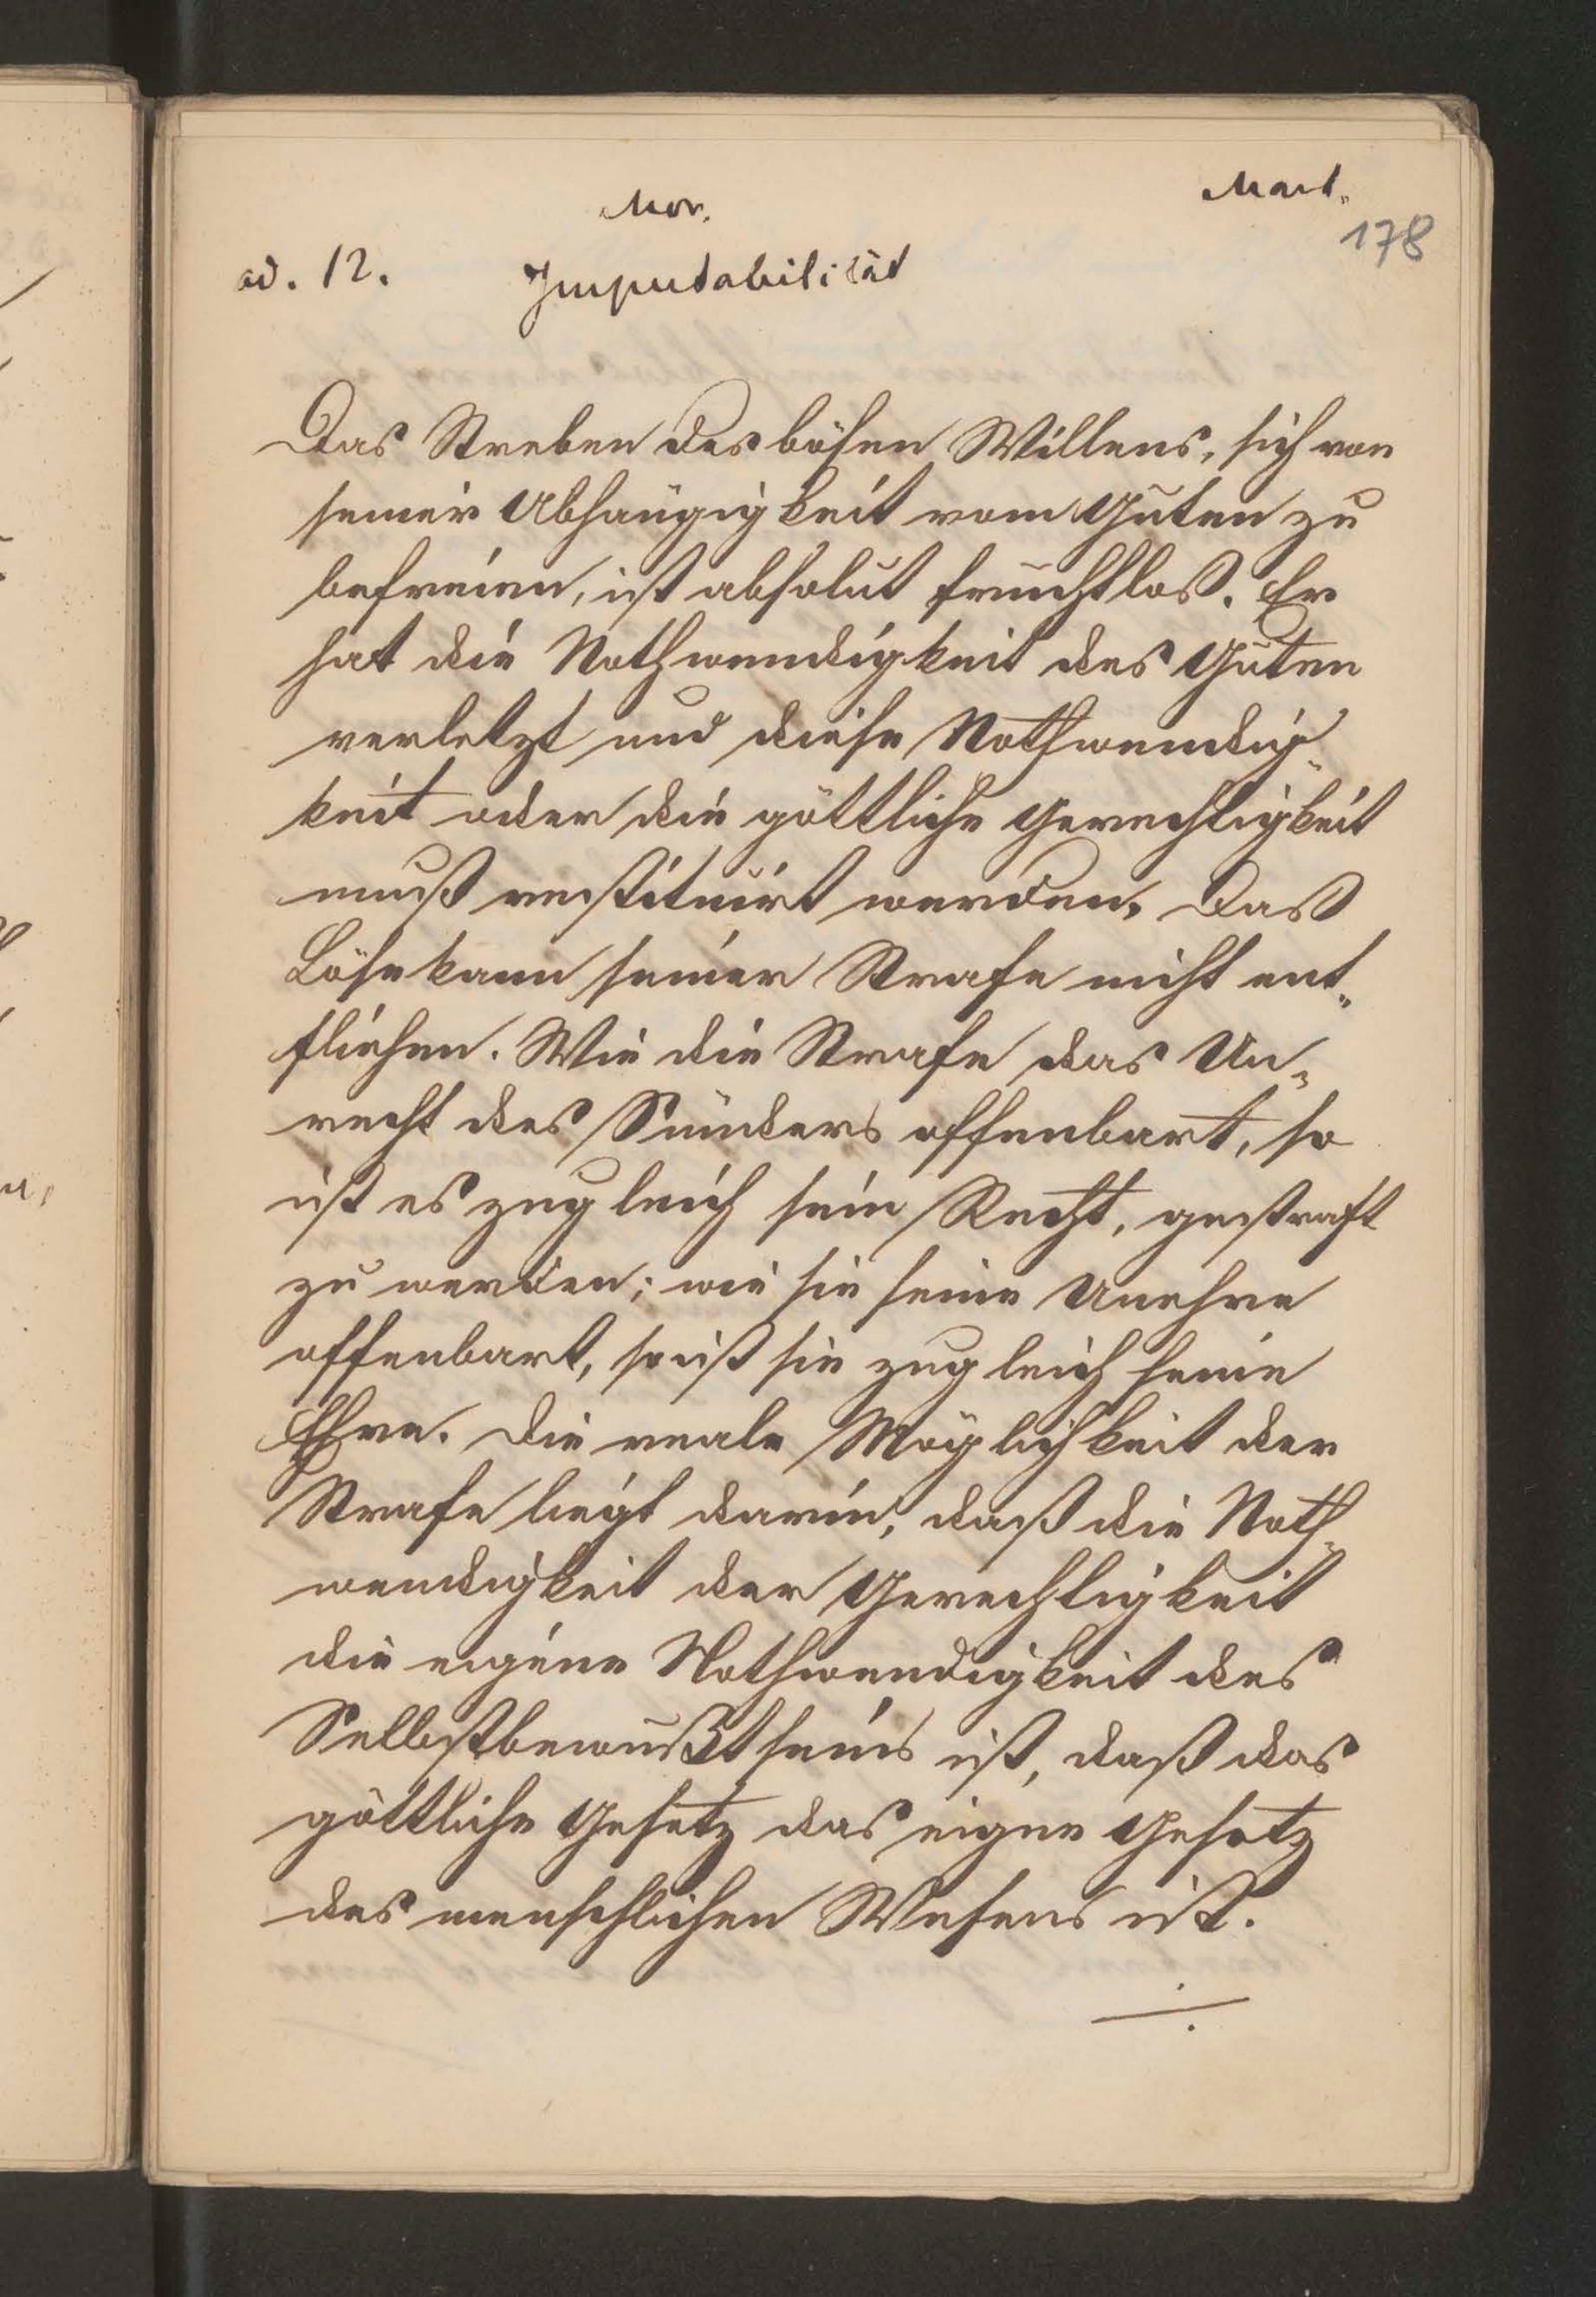 Mor.
Mart.
178
ad. 12.
Imputabilität
Das Streben des bösen Willens, sich von
seiner Abhängigkeit vom Guten zu
befreien, ist absolut fruchtloß. Er
hat die Nothwendigkeit des Guten
verletzt und diese Nothwendig-
keit oder die göttliche Gerechtigkeit
muß restituirt werden. Daß
Böse kann seiner Strafe nicht ent-
fliehen. Wie die Strafe das Un-
recht des Sünders offenbart, so
ist es zugleich sein Recht, gestraft
zu werden; wie sie seine Unehre
offenbart, so ist sie zugleich seine
Ehre. Die reale Möglichkeit der
Strafe liegt darin, daß die Noth-
wendigkeit der Gerechtigkeit
die eigene Nothwendigkeit des
Selbstbewußtseins ist, daß das
göttliche Gesetz das eigene Gesetz
des menschlichen Wesens ist.